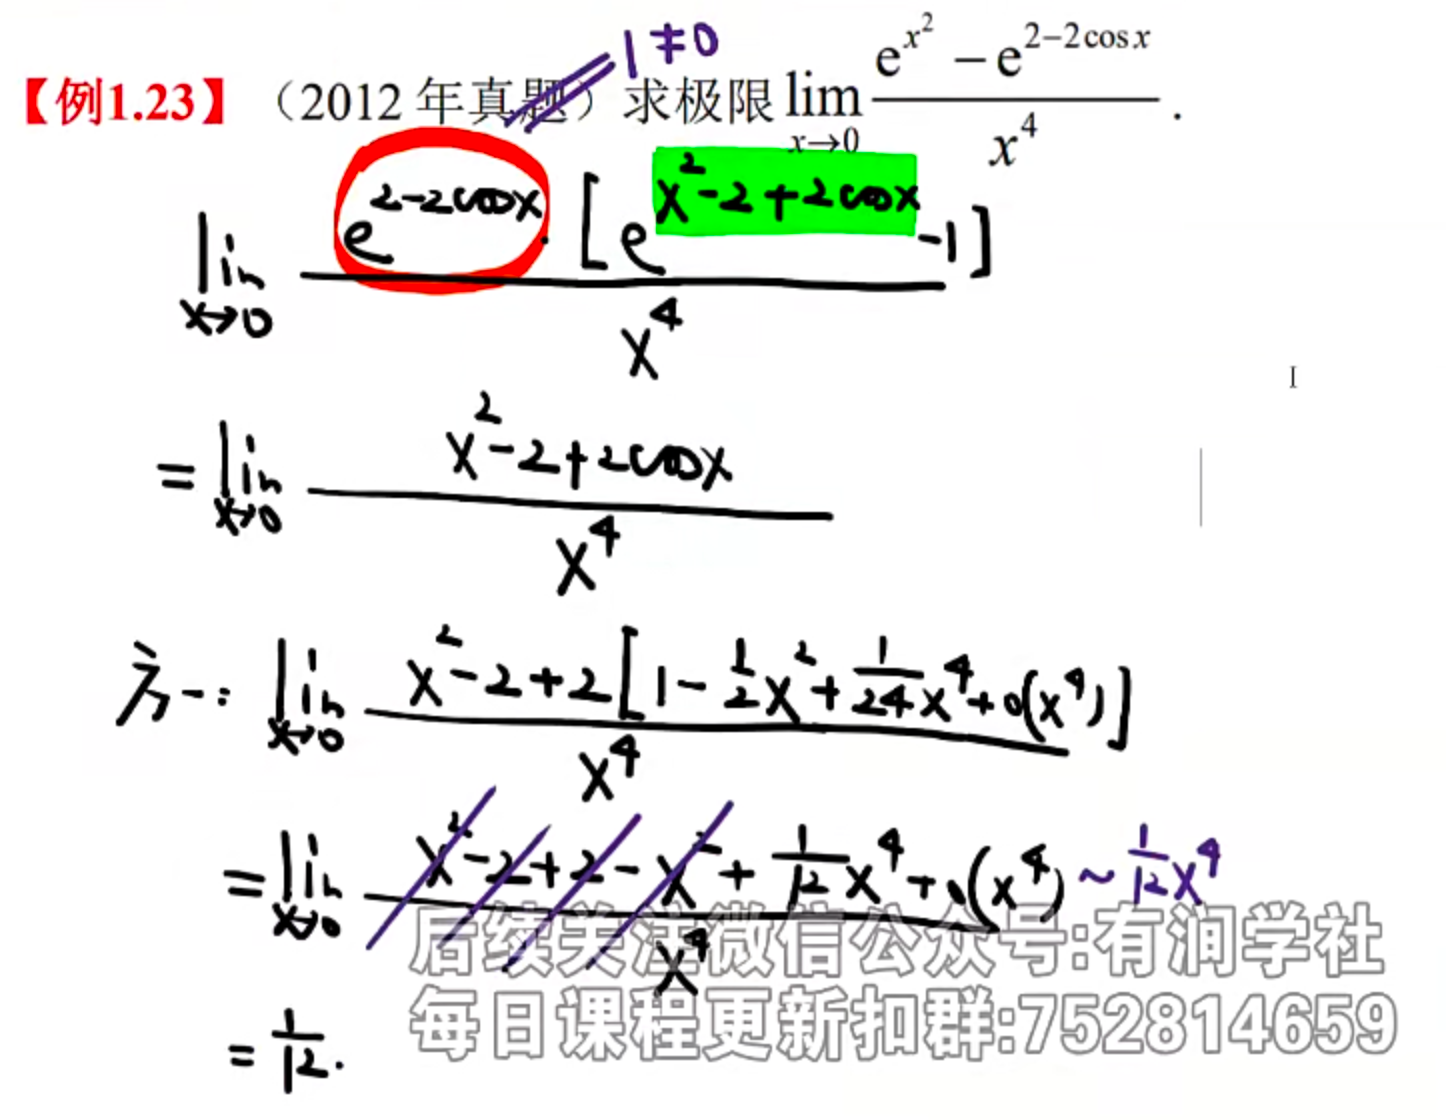 1≠0
【例1.23】（2012 年真题）求极限 lim x→0 (e^{x^2} − e^{2−2cos x}) / x^4 .
lim x→0 e^{2-2cosx} · [e^{x^2-2+2cosx} -1] / x^4
= lim x→0 (x^2-2+2cosx) / x^4
方一: lim x→0 (x^2-2+2[1-1/2 x^2+1/24 x^4+o(x^4)]) / x^4
= lim x→0 (x^2-2+2-x^2+1/12 x^4+o(x^4)) / x^4 ~ 1/12 x^4
后续关注微信公众号:有润学社
每日课程更新扣群:752814659
= 1/12.